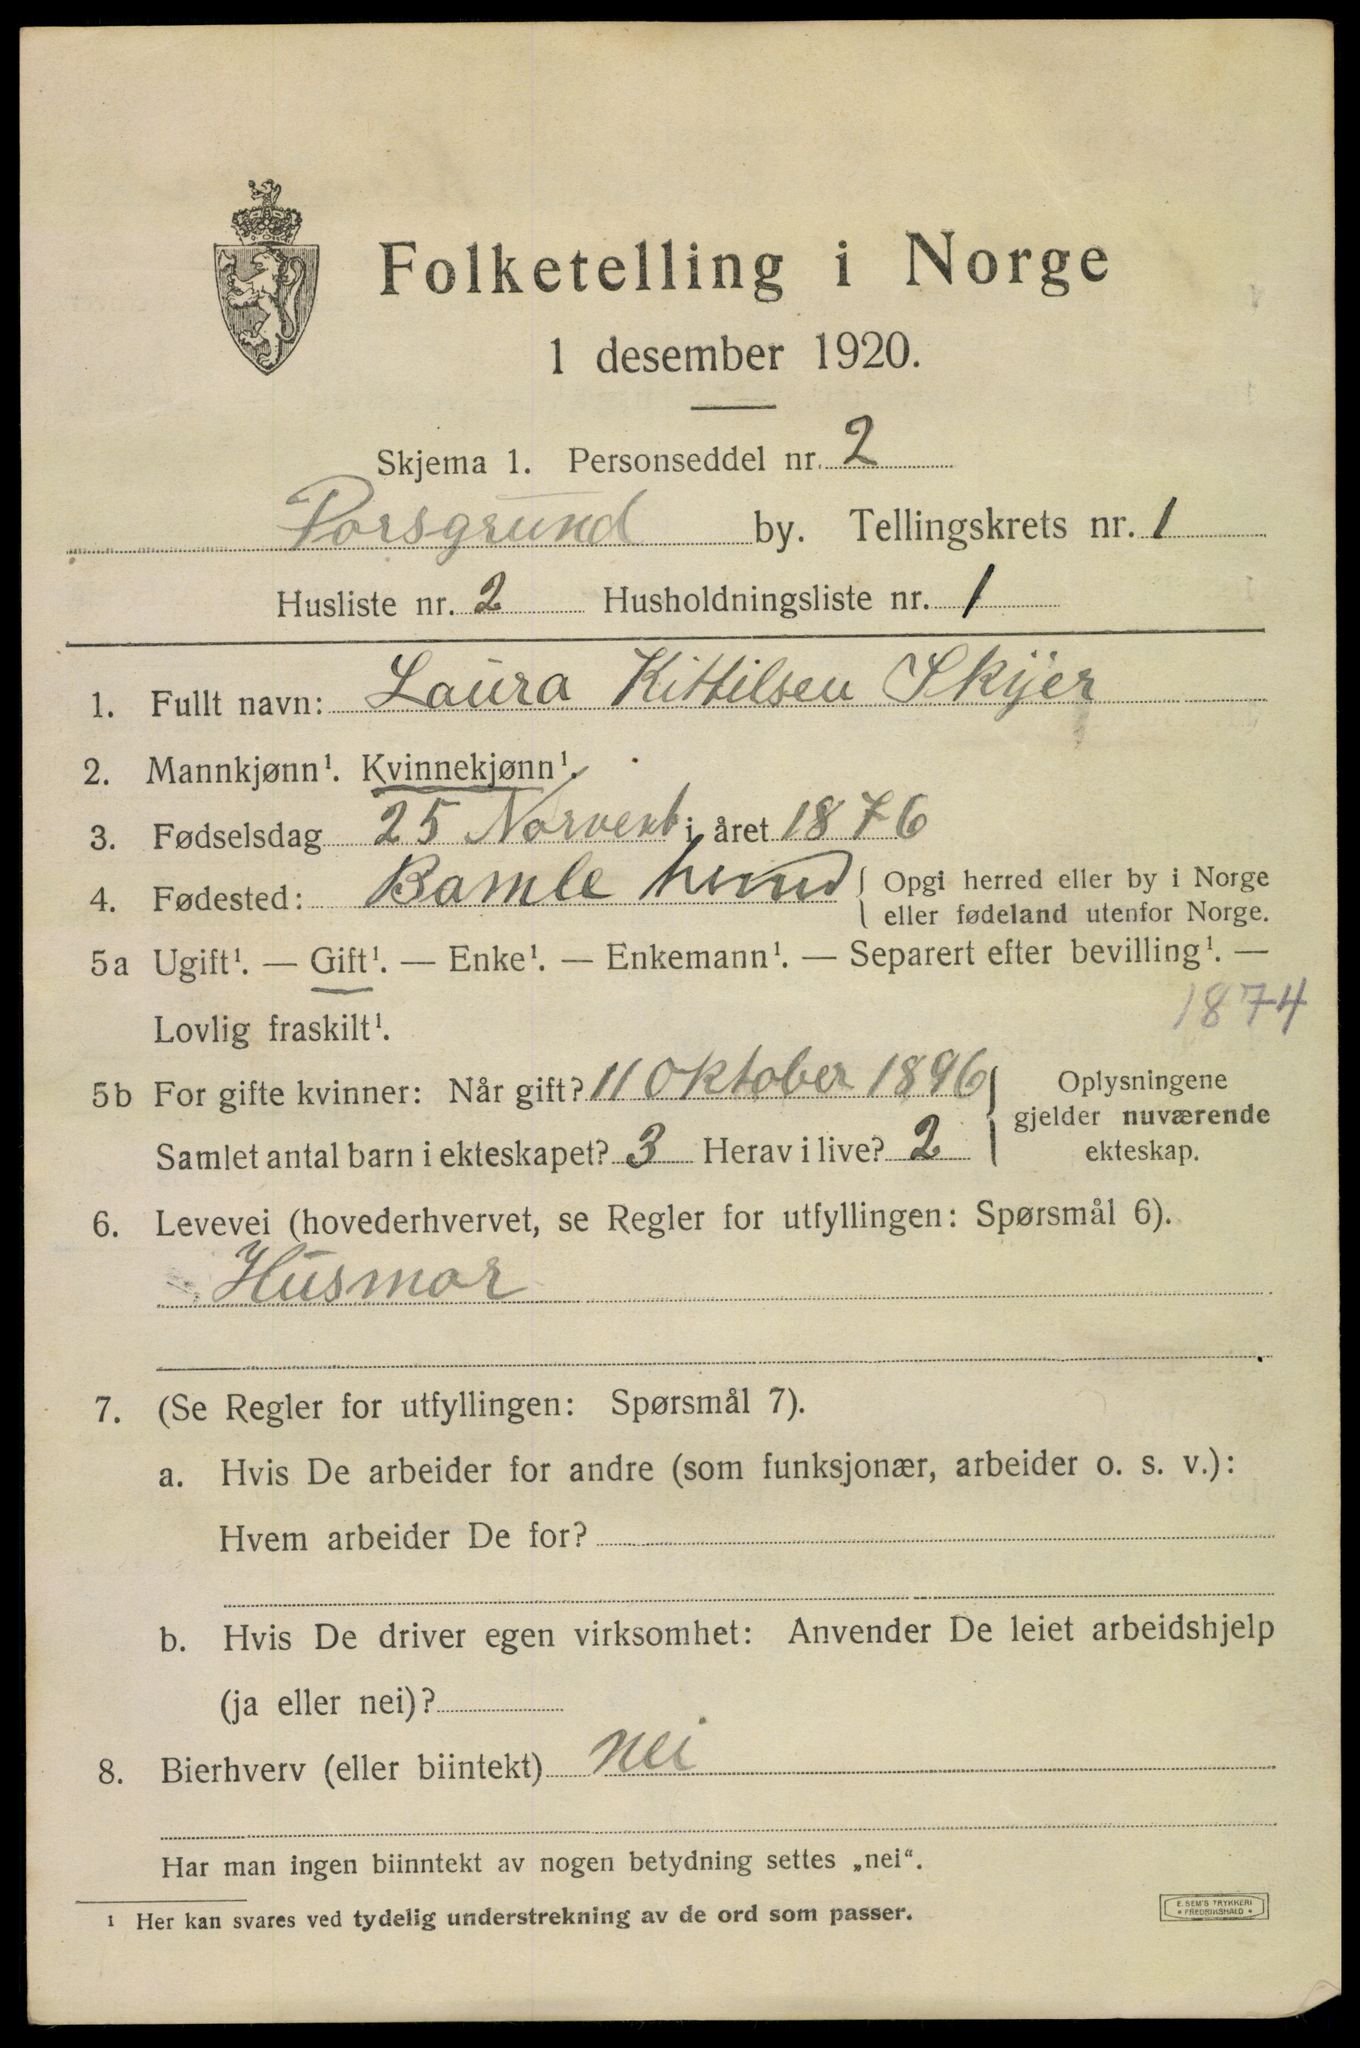 Folketelling i Norge
1 desember 1920.
Skjema 1. Personseddel nr. 2
Porsgrund by. Tellingskrets nr. 1
Husliste nr. 2 Husholdningsliste nr. 1
1. Fullt navn: Laura Kittilsen Skyer
2. Mannkjønn¹. Kvinnekjønn¹.
3. Fødselsdag 25 Norvenb i året 1876
4. Fødested: Bamle herred { Opgi herred eller by i Norge
eller fødeland utenfor Norge.
5a Ugift¹. — Gift¹. — Enke¹. — Enkemann¹. — Separert efter bevilling¹. —
1874
Lovlig fraskilt¹.
5b For gifte kvinner: Når gift? 11 Oktober 1896 } Oplysningene
gjelder nuværende
Samlet antal barn i ekteskapet? 3 Herav i live? 2 ekteskap.
6. Levevei (hovederhvervet, se Regler for utfyllingen: Spørsmål 6).
Husmor
7. (Se Regler for utfyllingen: Spørsmål 7).
a. Hvis De arbeider for andre (som funksjonær, arbeider o. s. v.):
Hvem arbeider De for?
b. Hvis De driver egen virksomhet: Anvender De leiet arbeidshjelp
(ja eller nei)?
8. Bierhverv (eller biintekt) nei
Har man ingen biinntekt av nogen betydning settes „nei“.
¹ Her kan svares ved tydelig understrekning av de ord som passer.
E. SEM'S TRYKKERI
* FREDRIKSHALD *